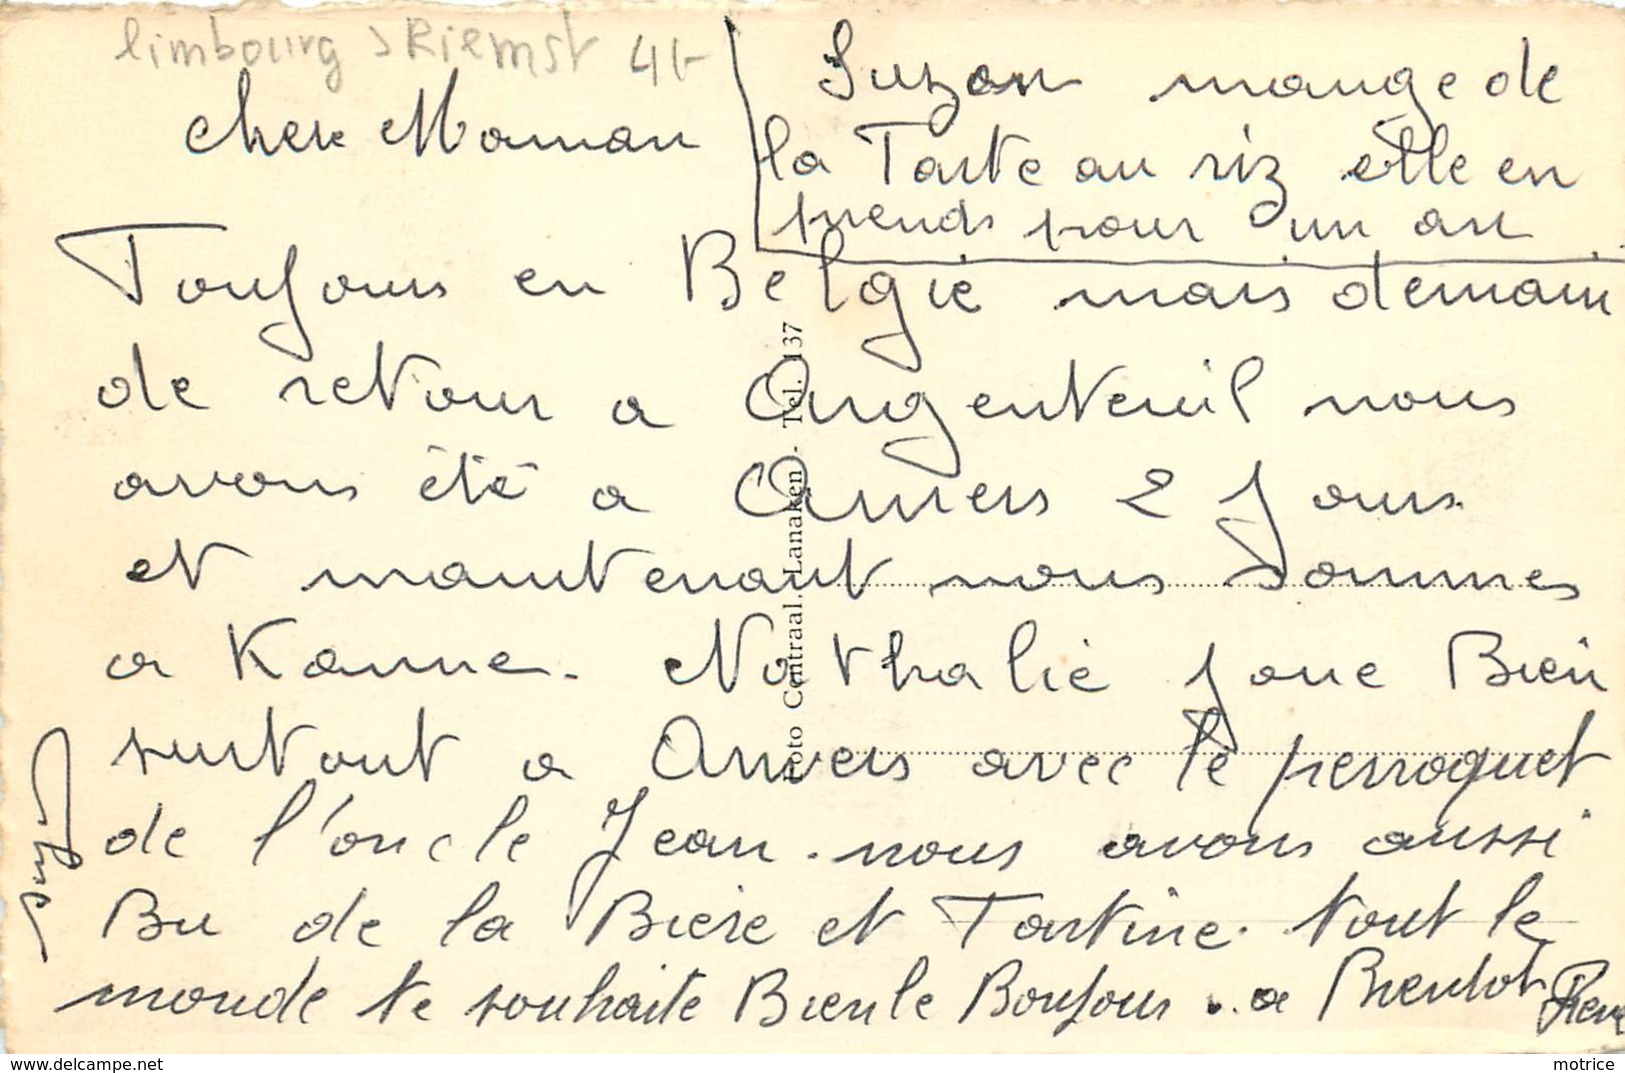 limbourg > Riemst 4t
chere Maman
Suzon mange de
la Tarte au riz elle en
prends pour un an
Toujours en Belgie mais demain
de retour a Argenteuil nous
avons été a Anvers 2 Jours
et maintenant nous sommes
a Kanne. Nathalie joue Bien
surtout a Anvers avec le perroquet
de l'oncle Jean. nous avons aussi
Bu de la Biere et Tartine. tout le
monde te souhaite Bien le Bonjour. a Bientot Pierre
Foto Centraal. Lanaken - Tel. 137
delcampe.net
motrice